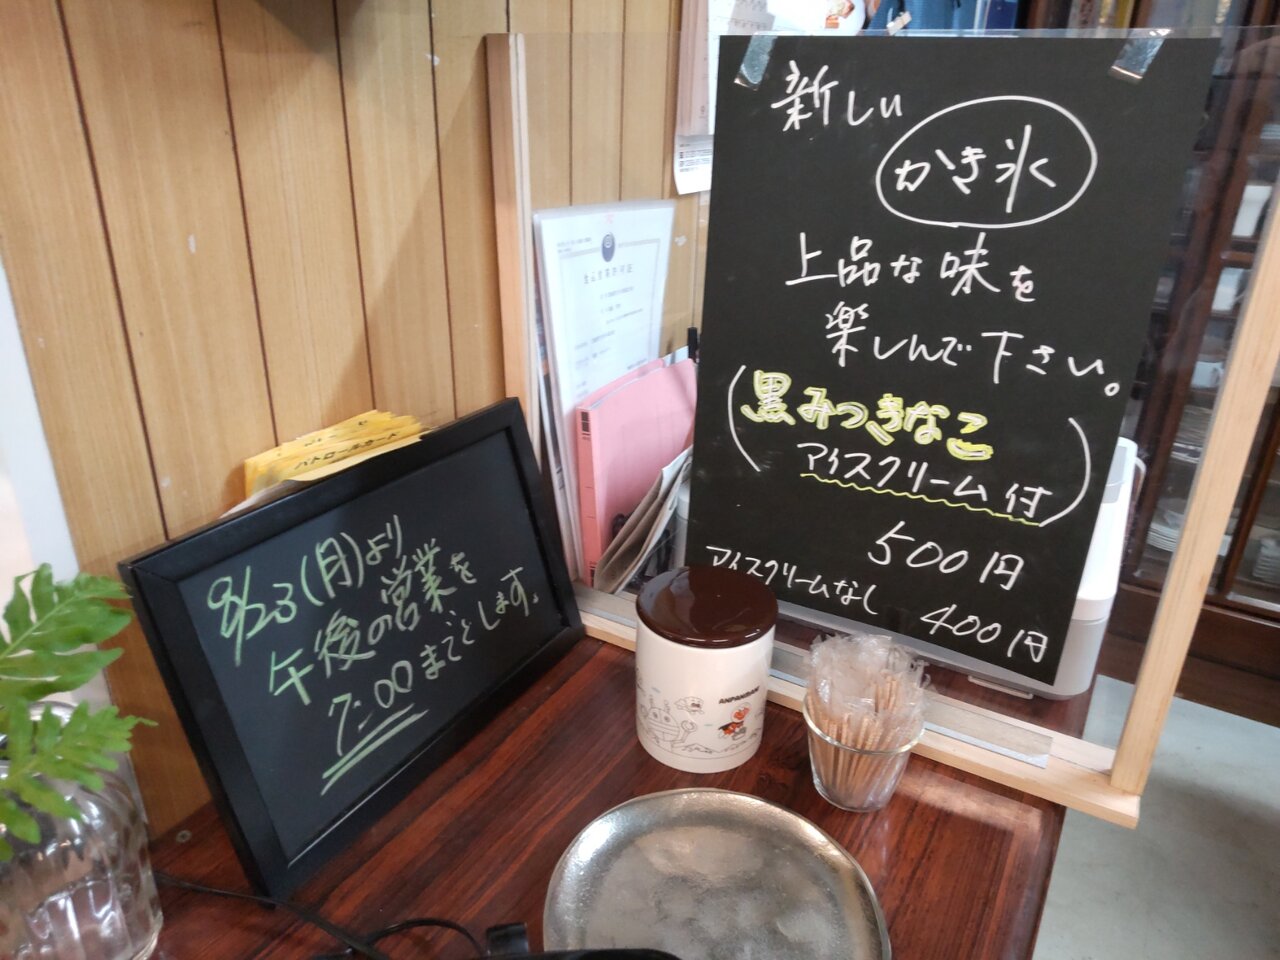 新しい
かき氷
上品な味を
楽しんで下さい。
(黒みつきなこ
アイスクリーム付)
500円
アイスクリームなし
400円
パトロールカード
8/23(月)より
午後の営業を
7:00までとします。
ANPANMAN